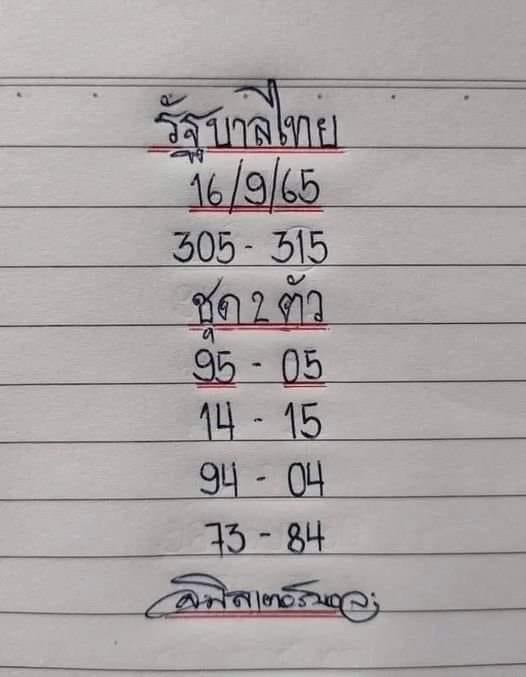 รัฐบาลไทย
16/9/65
305 - 315
ชุด 2 ตัว
95 - 05
14 - 15
94 - 04
73 - 84